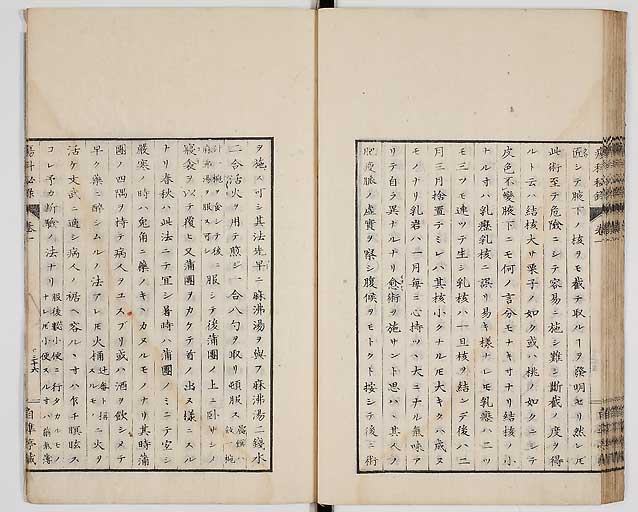 匠シテ腋下ノ核ヲモ截テ取ルヿヲ發明セリ然レ𪜈
此術至テ危險ニシテ容易ニ施シ難シ斷截ノ度ヲ得
ルト云ハ結核大サ栗子ノ如ク或ハ桃ノ如クニシテ
皮色不變腋下ニモ何ノ言分モナキヲナリ結核ノ小
ナルオハ乳癧乳核ニ誤リ易キ樣ナレ𪜈乳癧ハ二ツ
モ三ツモ連ツテ生シ乳核ハ一旦核ヲ結ンデ後ハ二
月三月捨置テミレハ其核小クナル𪜈大キクハ成ヌ
モノナリ乳岩ハ一月每ニ心持ツヽ大ニナル氣味ア
リテ自ラ異ナルナリ愈術ヲ施サント思ハヽ其人ノ
肥瘦脈ノ虛實ヲ察シ腹候ヲモトクト按シテ後術
ヲ施ス可シ其法先早ニ麻沸湯ヲ與フ麻沸湯二錢水
二合活火ヲ用テ煎シ一合八勺ヲ取リ頓服ス
服シテ後蒲團ノ上ニ臥サシメ
寢衾ヲ以テ覆ヒ又蒲團ヲカケテ首ノミ出ヌ樣ニスル
ナリ春秋ハ此法ニテ宜シ暑時ハ蒲團ノミニテ宜シ
嚴寒ノ時ハ兎角ニ藥ノキヽカヌルモノナリ其時蒲
團ノ四隅ヲ持テ病人ヲユスブリ或ハ酒ヲ飮シメテ
早ク藥ニ醉シムルノ法アレ𪜈火桶
ニ火ヲ
活ケ文武ニ適シ病人ノ裾ヘ容ルヽオハ乍チ瞑眩ス
コレ予カ斷驗ノ法ナリ
服後輟小便ニ行タカルモノ
ナレ𪜈小便スルオハ藥氣薄
卷一
三十六
自準亭藏